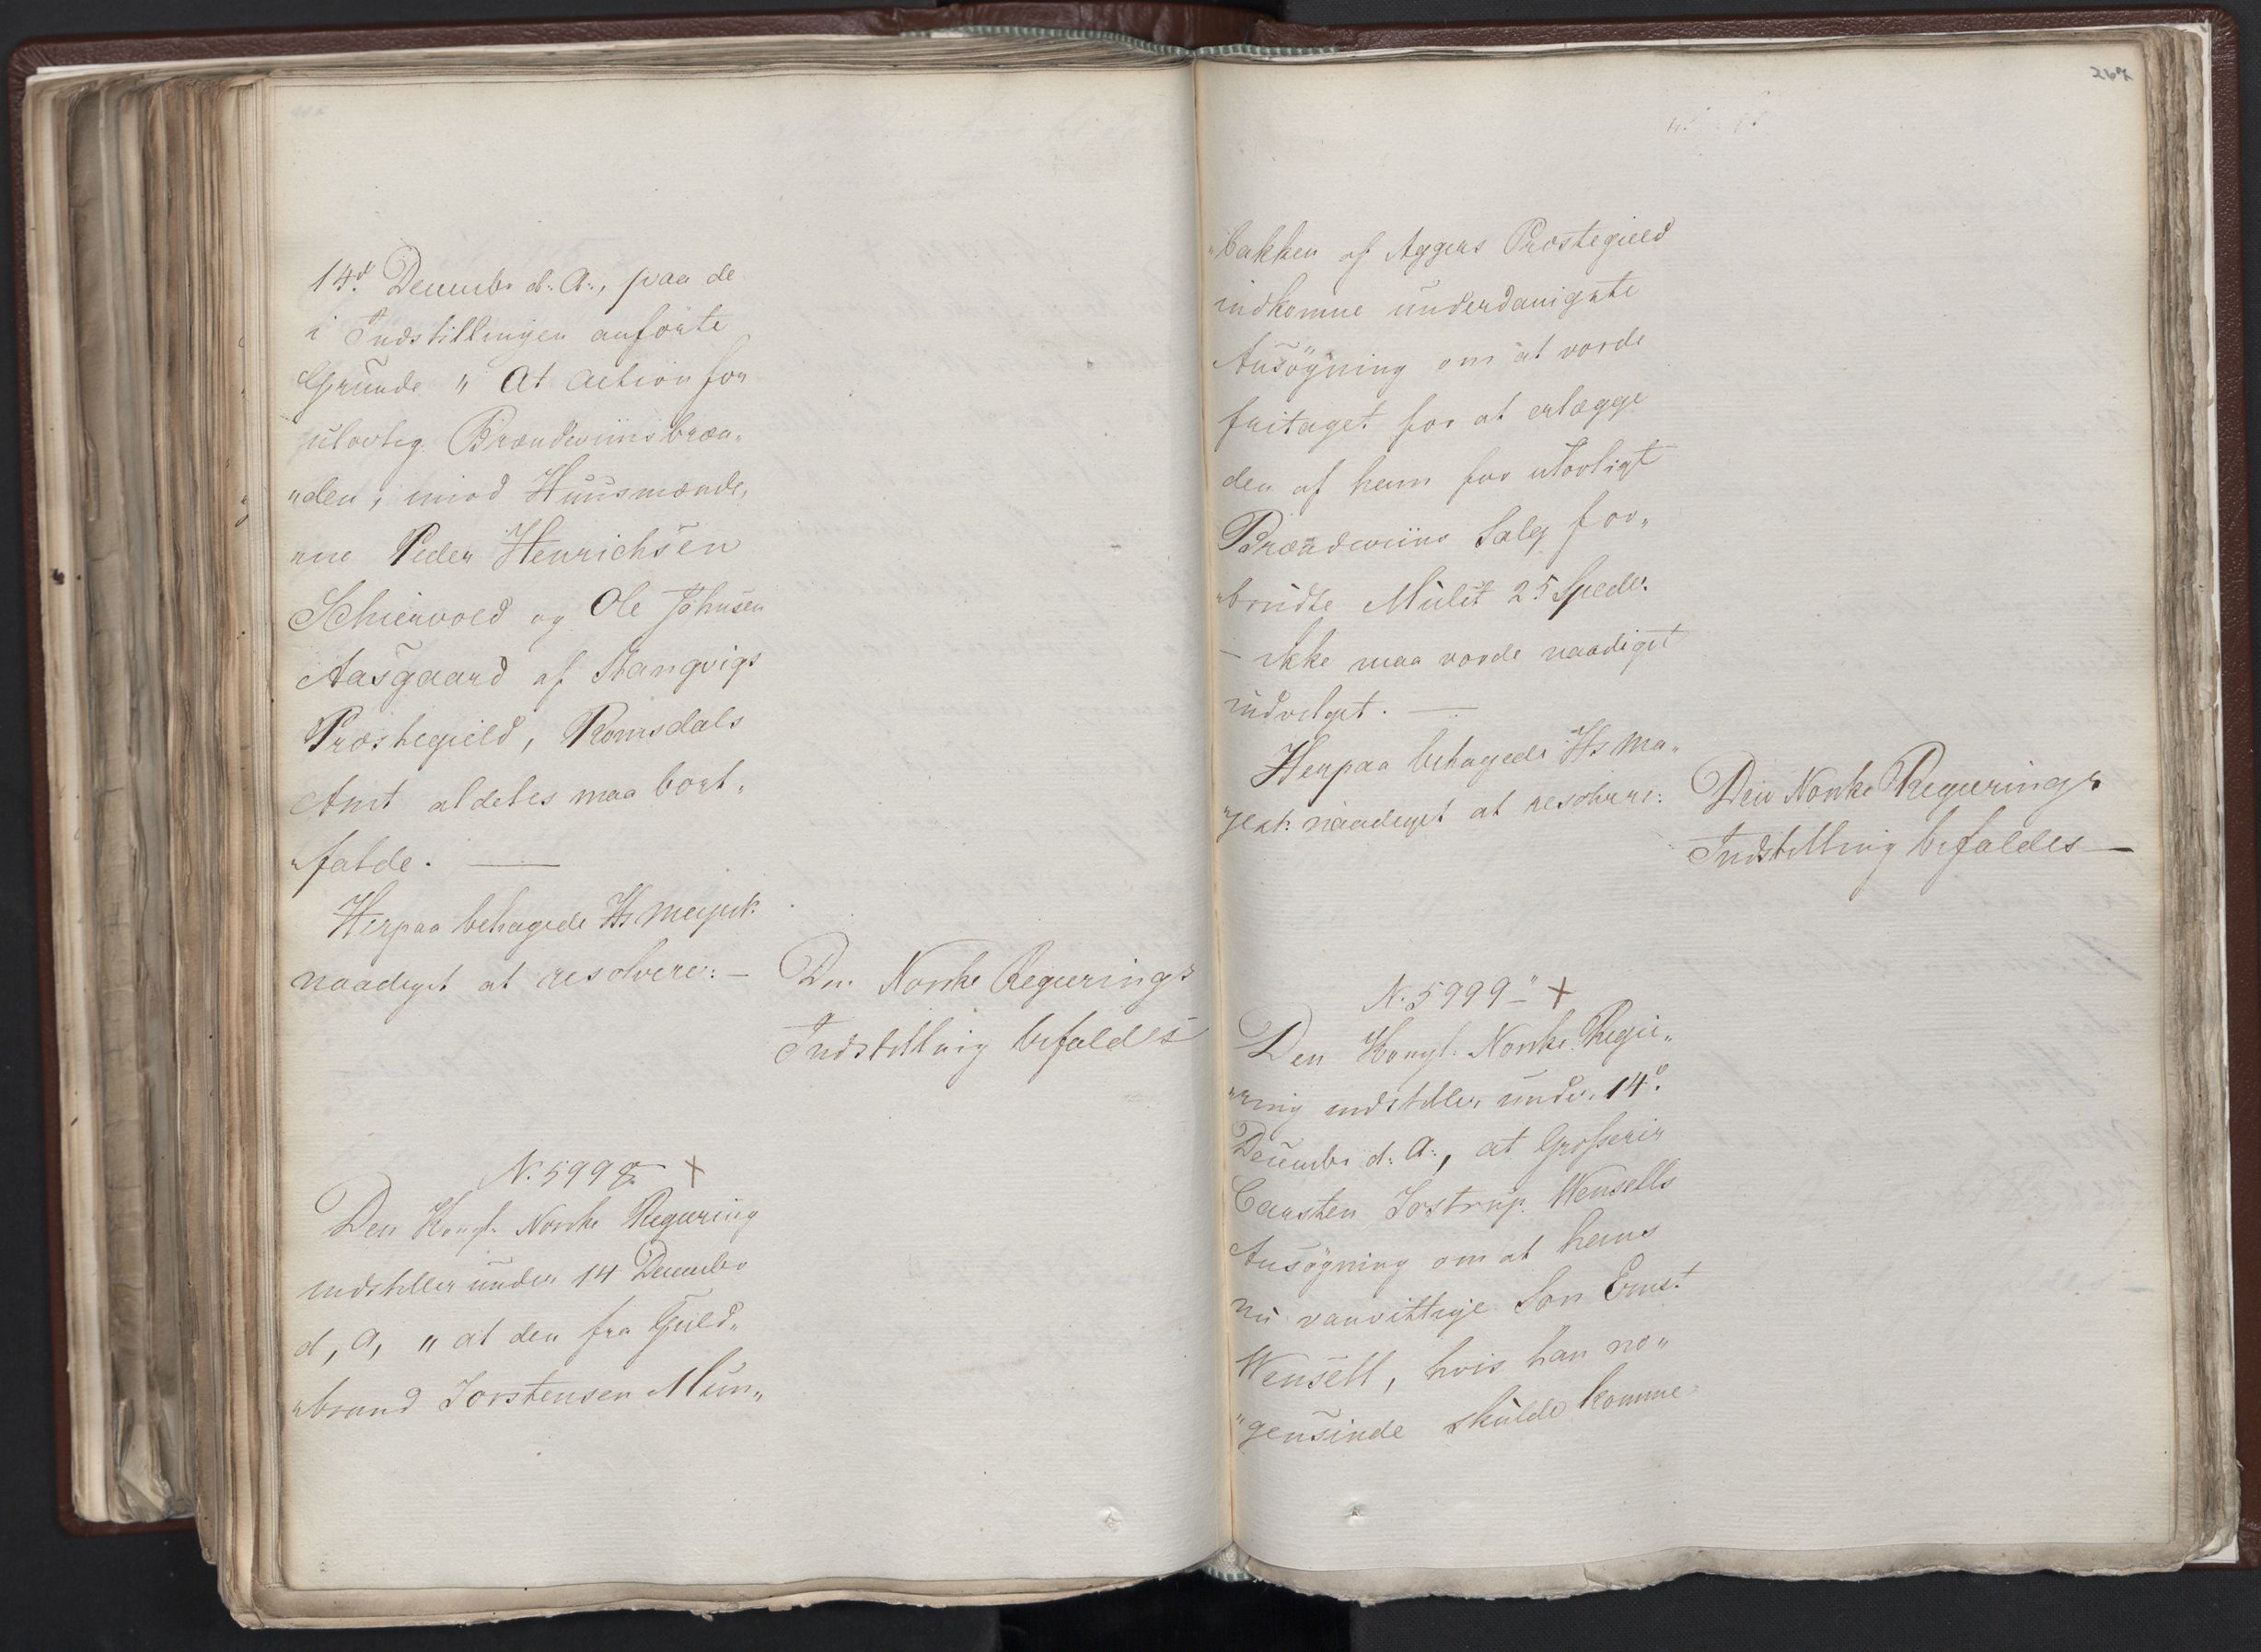 14d Decembr d. A., paa de
i Indstillingen anførte
Grunde " At Action for
ulovlig Brændeviinsbræn„
„den, mod Huusmænde„
„ne Peder Henrichsen
Schiervold og Ole Johnsen
Aasgaard af Stangvigs
Præstegield, Romsdals
Amt aldeles maa bort„
„falde. —
Herpaa behagede Hs Majest:
naadigst at resolvere: —
Den Norske Regierings
Indstilling bifaldes
N. 5998. +
Den Kongl. Norske Regiering
indstiller under 14 Decembr
d, A, " at den fra Guld„
„brand Torstensen Mun„
267
„bakken af Aggers Præstegield
indkomne underdanigste
Ansøgning om at vorde
fritaget for at erlægge
den af ham for ulovligt
Brændeviins Salg for„
„brudte Mulct 25 Spedlr.
— ikke maa vorde naadigst
indvilget. —
Herpaa behagede Hs Ma„
„jest: naadigst at resolvere:
Den Norske Regierings
Indstilling bifaldes —
N. 5999 - +
Den Kongl. Norske Regie„
„ring indstiller under 14d
Decembr d. A., at Grosserer
Carsten Tostrup Wensells
Ansøgning om at hans
nu vanvittige Søn Ernst
Wensell, hvis han no„
„gensinde skulde komme